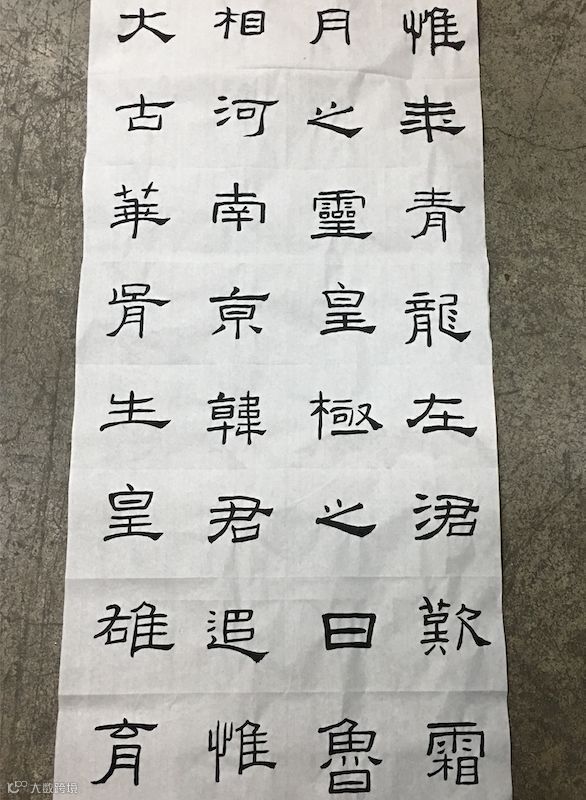 惟年青龍在涒歎霜
月之靈皇極之日魯
相河南京韓君追惟
大古華胥生皇雄育
大数跨境